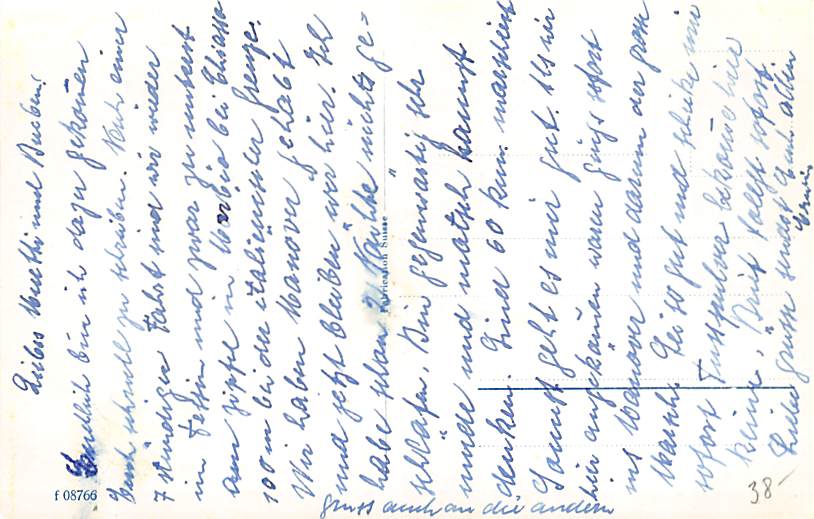 Liebes Muetti und Buben!
Endlich bin ich dazu gekommen
Euch schnell zu schreiben. Nach einer
7 stündigen Fahrt sind wir wieder
im Tessin und zwar zu unterst
am Zipfel in bei Chiasso
100 m bei der italienischer Grenze.
Wir haben Manöver gehabt
und jetzt bleiben wir hier. Ich
habe schon 2 Nächte nichts ge=
schlafen, Bin gegenwärtig sehr
müde und
denken. Sind 60 km. marschiert
Sonnst geht es mir gut. Als wir
hier angekommen waren gings sofort
ins Manöver und darum der grosse
Marsch. Sei so gut und schicke mir
sofort Fusspulver bekomme hier
keine,
Liebe Grüsse sendet Euch allen
Erwin
Gruss auch an die andern
Fabrication Suisse
f 08766
38-